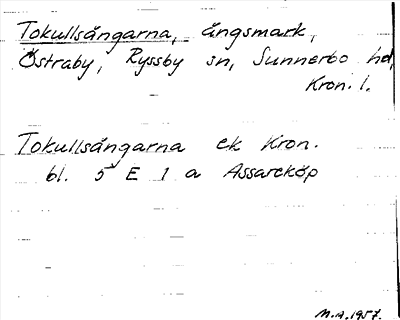 Tokullsängarna, ängsmark,
Östraby, Ryssby sn, Sunnerbo hd,
Kron. l.
Tokullsängarna ek Kron.
bl. 5 E 1 a Assarcköp
M.A. 1957.